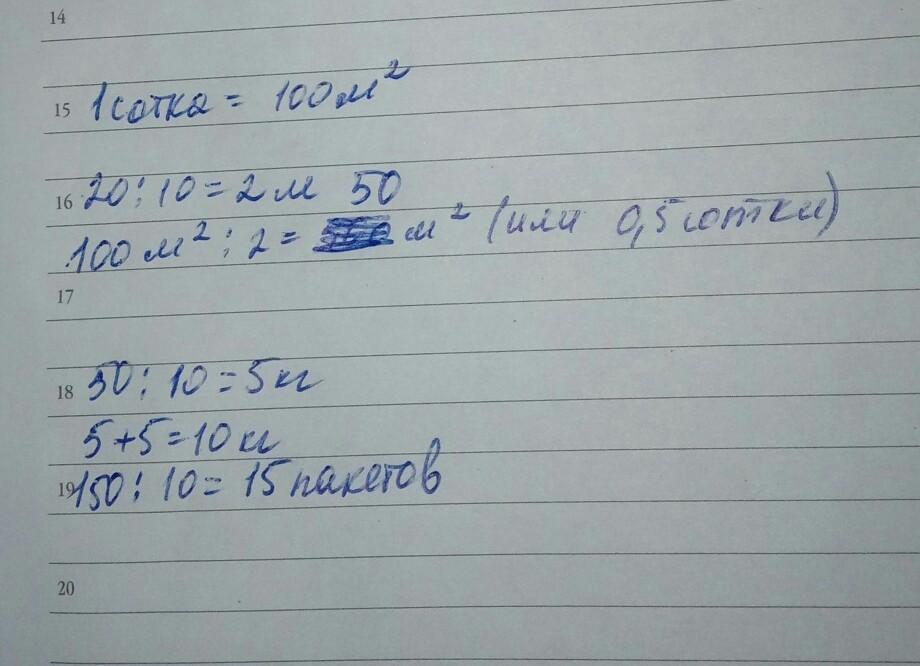 14
15 1 сотка = 100 м²
16 20 : 10 = 2 м 50
100 м² : 2 = м² (или 0,5 сотки)
17
18 50 : 10 = 5 кг
5 + 5 = 10 кг
19 150 : 10 = 15 пакетов
20